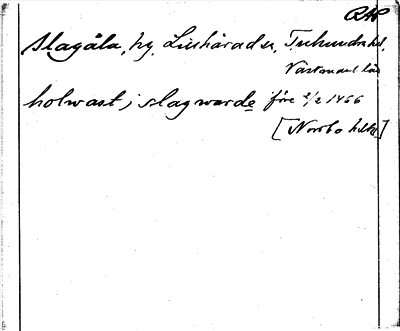 RAP
Slagåla, hg. Lillhärads sn, Tuhundra hd,
Västmanl. län
holwast j slagwarde före 2/2 1466
[Norrbo hd]